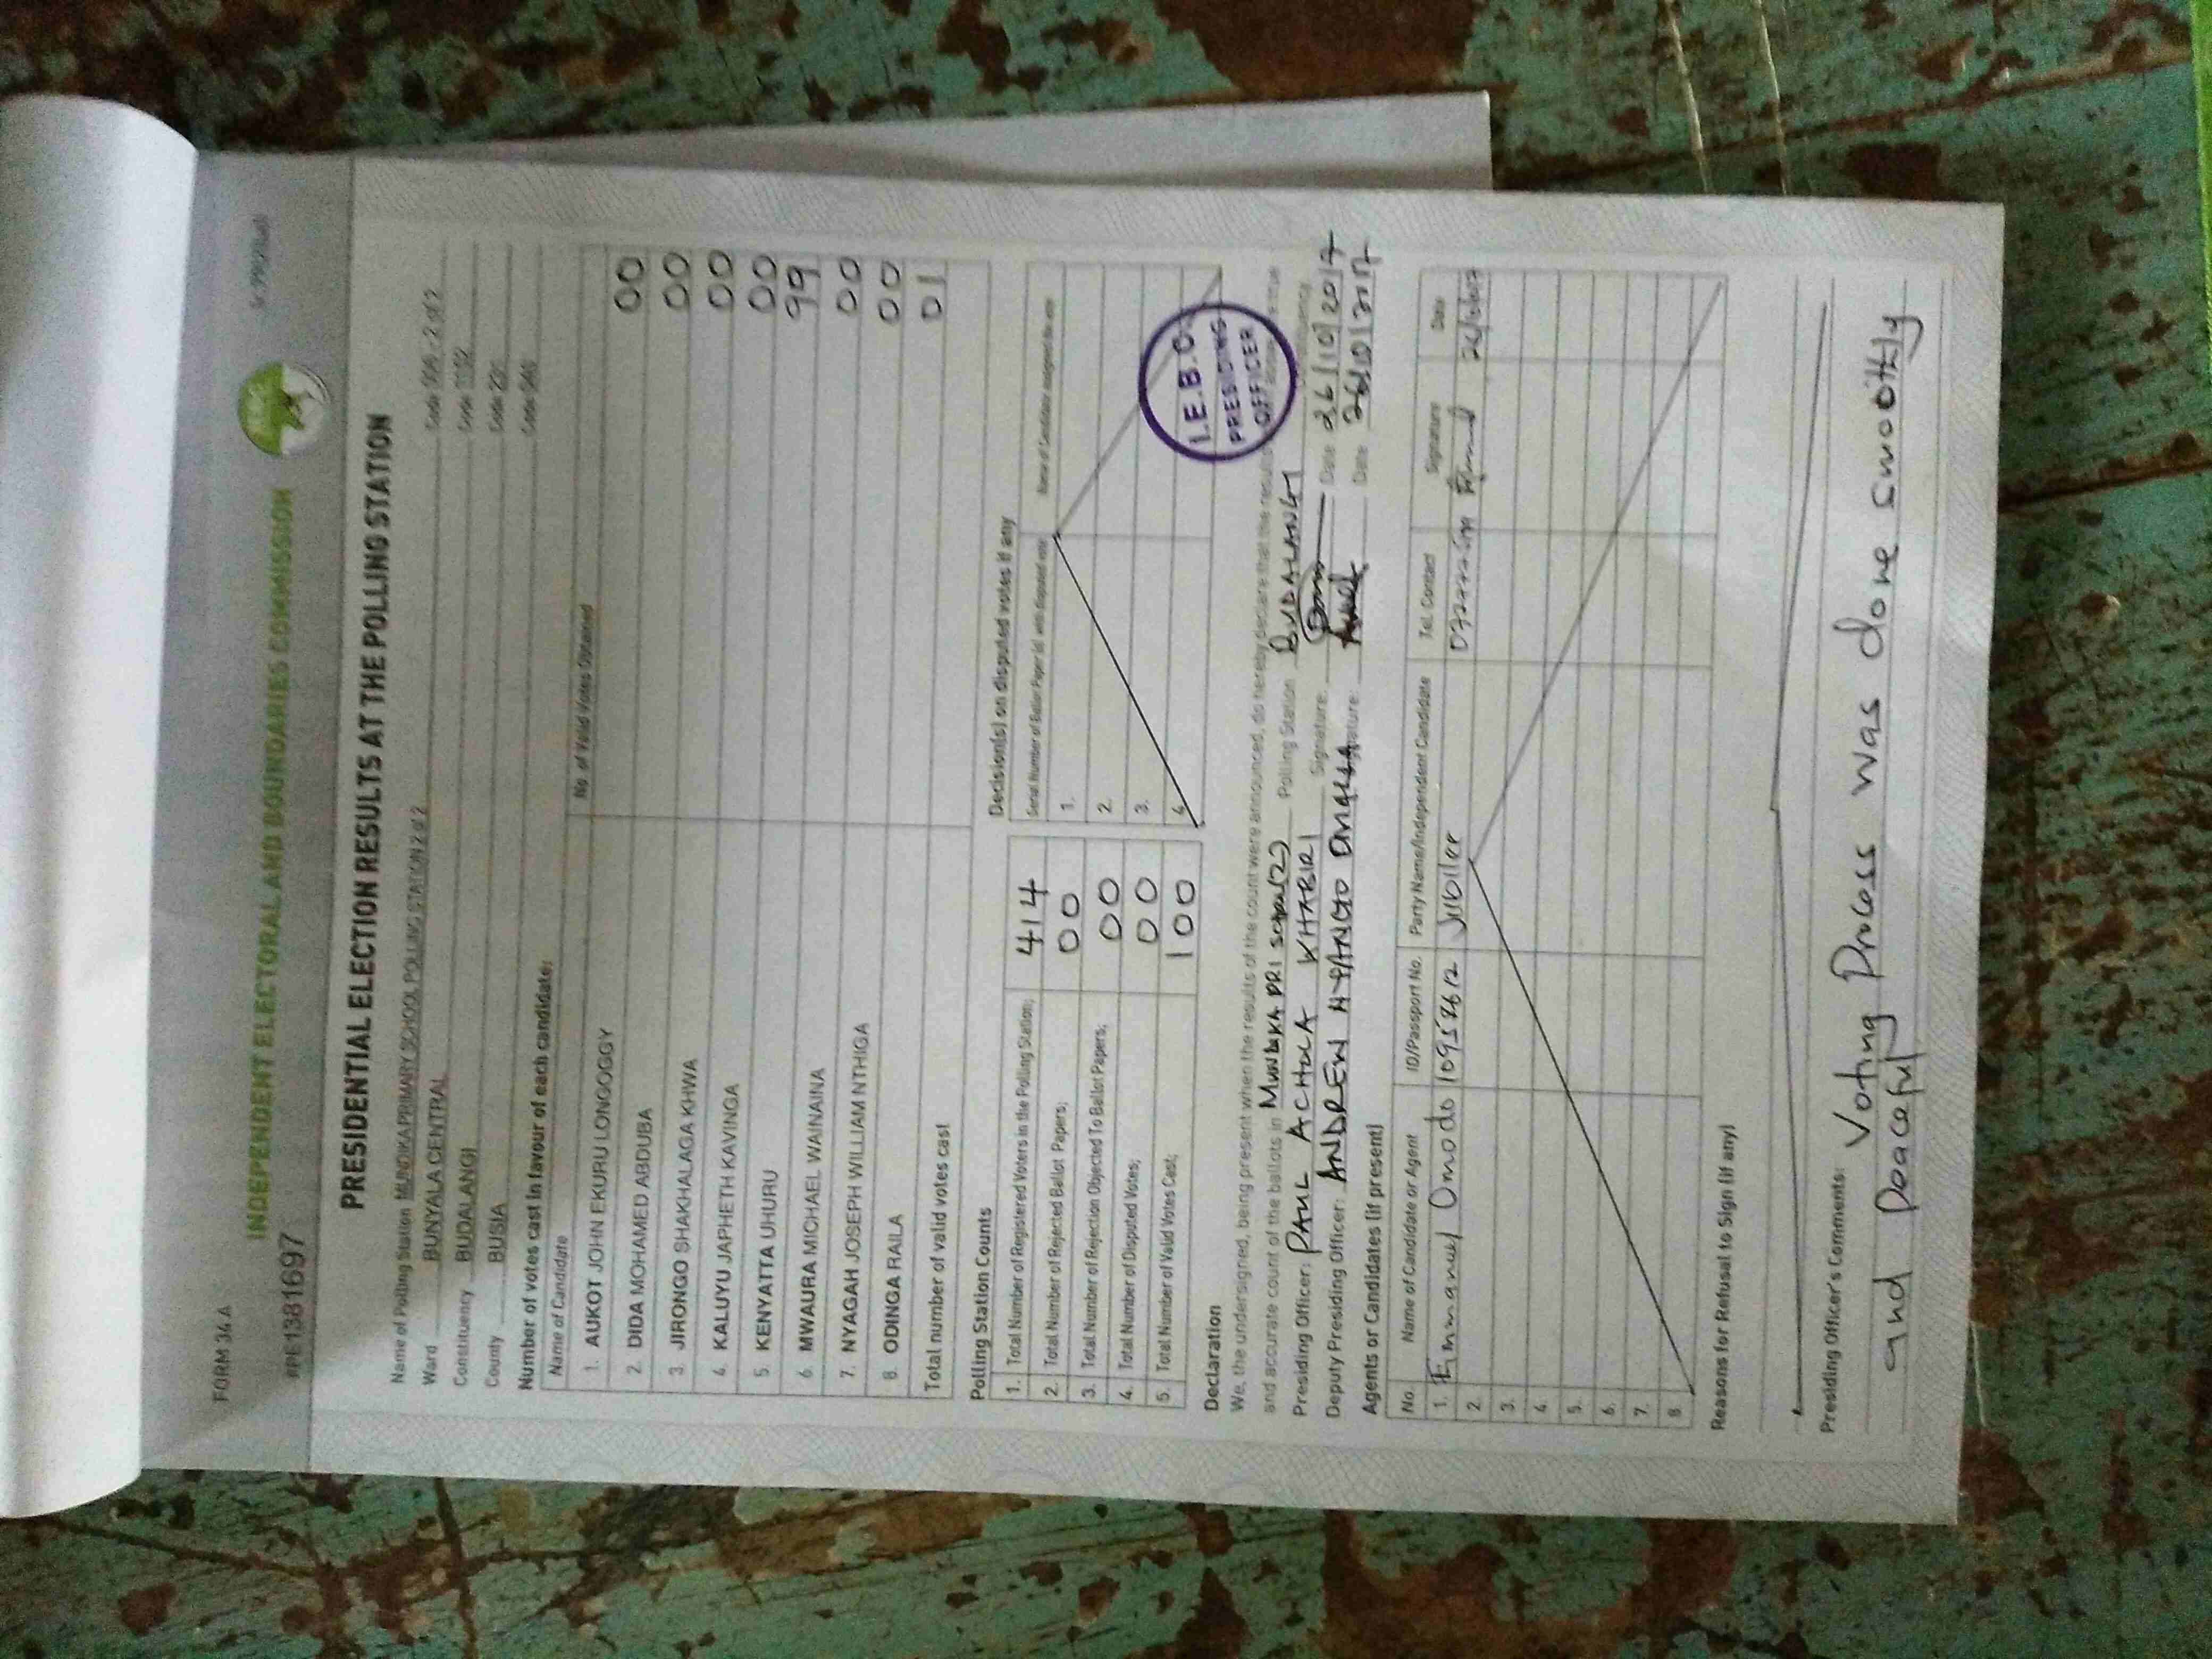 FORM 34 A
INDEPENDENT ELECTORAL AND BOUNDARIES COMMISSION
#PE1381697
PRESIDENTIAL ELECTION RESULTS AT THE POLLING STATION
Name of Polling Station MUNDIKA PRIMARY SCHOOL POLLING STATION 2 of 2 Code 006 - 2 of 2
Ward BUNYALA CENTRAL Code 1152
Constituency BUDALANGI Code 231
County BUSIA Code 040
Number of votes cast in favour of each candidate;
Name of Candidate No. of Valid Votes Obtained
1. AUKOT JOHN EKURU LONGOGGY 00
2. DIDA MOHAMED ABDUBA 00
3. JIRONGO SHAKHALAGA KHWA 00
4. KALUYU JAPHETH KAVINGA 00
5. KENYATTA UHURU 99
6. MWAURA MICHAEL WAINAINA 00
7. NYAGAH JOSEPH WILLIAM NTHIGA 00
8. ODINGA RAILA 01
Total number of valid votes cast
Polling Station Counts
1. Total Number of Registered Voters in the Polling Station; 414
2. Total Number of Rejected Ballot Papers; 00
3. Total Number of Rejection Objected To Ballot Papers; 00
4. Total Number of Disputed Votes; 00
5. Total Number of Valid Votes Cast; 100
Decision(s) on disputed votes if any
Serial Number of Ballot Paper (s) with disputed vote Name of Candidate assigned the vote
1.
2.
3.
4.
I.E.B.C.
PRESIDING
OFFICER
Declaration
We, the undersigned, being present when the results of the count were announced, do hereby declare that the results true
and accurate count of the ballots in MUNDIKA PRI school(2) Polling Station BUDALANGI
Presiding Officer: PAUL ACHOLA KHABIRI Signature: Date 26/10/2017
Deputy Presiding Officer: ANDREW Signature: Date 26/10/2017
Agents or Candidates (if present)
No. Name of Candidate or Agent ID/Passport No. Party Name/Independent Candidate Tel. Contact Signature Date
1. Emmanuel Omodo
2.
3.
4.
5.
6.
7.
8.
Reasons for Refusal to Sign (if any)
Presiding Officer's Comments: Voting Process was done smoothly
and peaceful